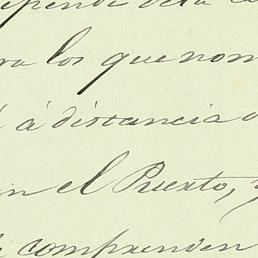 epende de la
ra los que nom
á distancia
en el Puerto, y
comprenden